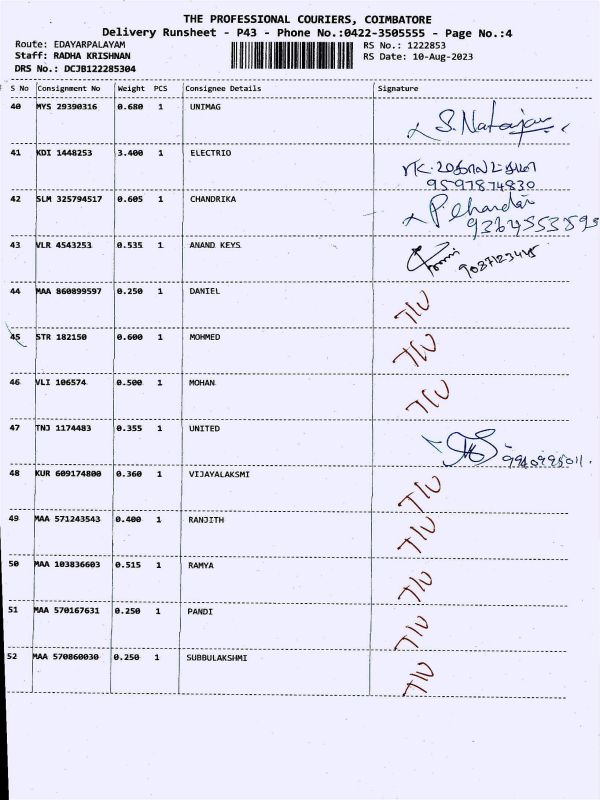 THE PROFESSIONAL COURIERS, COIMBATORE
Delivery Runsheet - P43 - Phone No.:0422-3505555 - Page No.:4
Route: EDAYARPALAYAM RS No.: 1222853
Staff: RADHA KRISHNAN RS Date: 10-Aug-2023
DRS No.: DCJB122285304
S No Consignment No Weight PCS Consignee Details Signature
40 MYS 29390316 0.680 1 UNIMAG S. Natarajan
41 KDI 1448253 3.400 1 ELECTRIO
9597874830
42 SLM 325794517 0.605 1 CHANDRIKA P. Chandra
43 VLR 4543253 0.535 1 ANAND KEYS
44 MAA 860899597 0.250 1 DANIEL TIU
45 STR 182150 0.600 1 MOHMED TIU
46 VLI 106574 0.500 1 MOHAN TIU
47 TNJ 1174483 0.355 1 UNITED
48 KUR 609174800 0.360 1 VIJAYALAKSMI TIU
49 MAA 571243543 0.400 1 RANJITH TIU
50 MAA 103836603 0.515 1 RAMYA TIU
51 MAA 570167631 0.250 1 PANDI TIU
52 MAA 570860030 0.250 1 SUBBULAKSHMI TIU